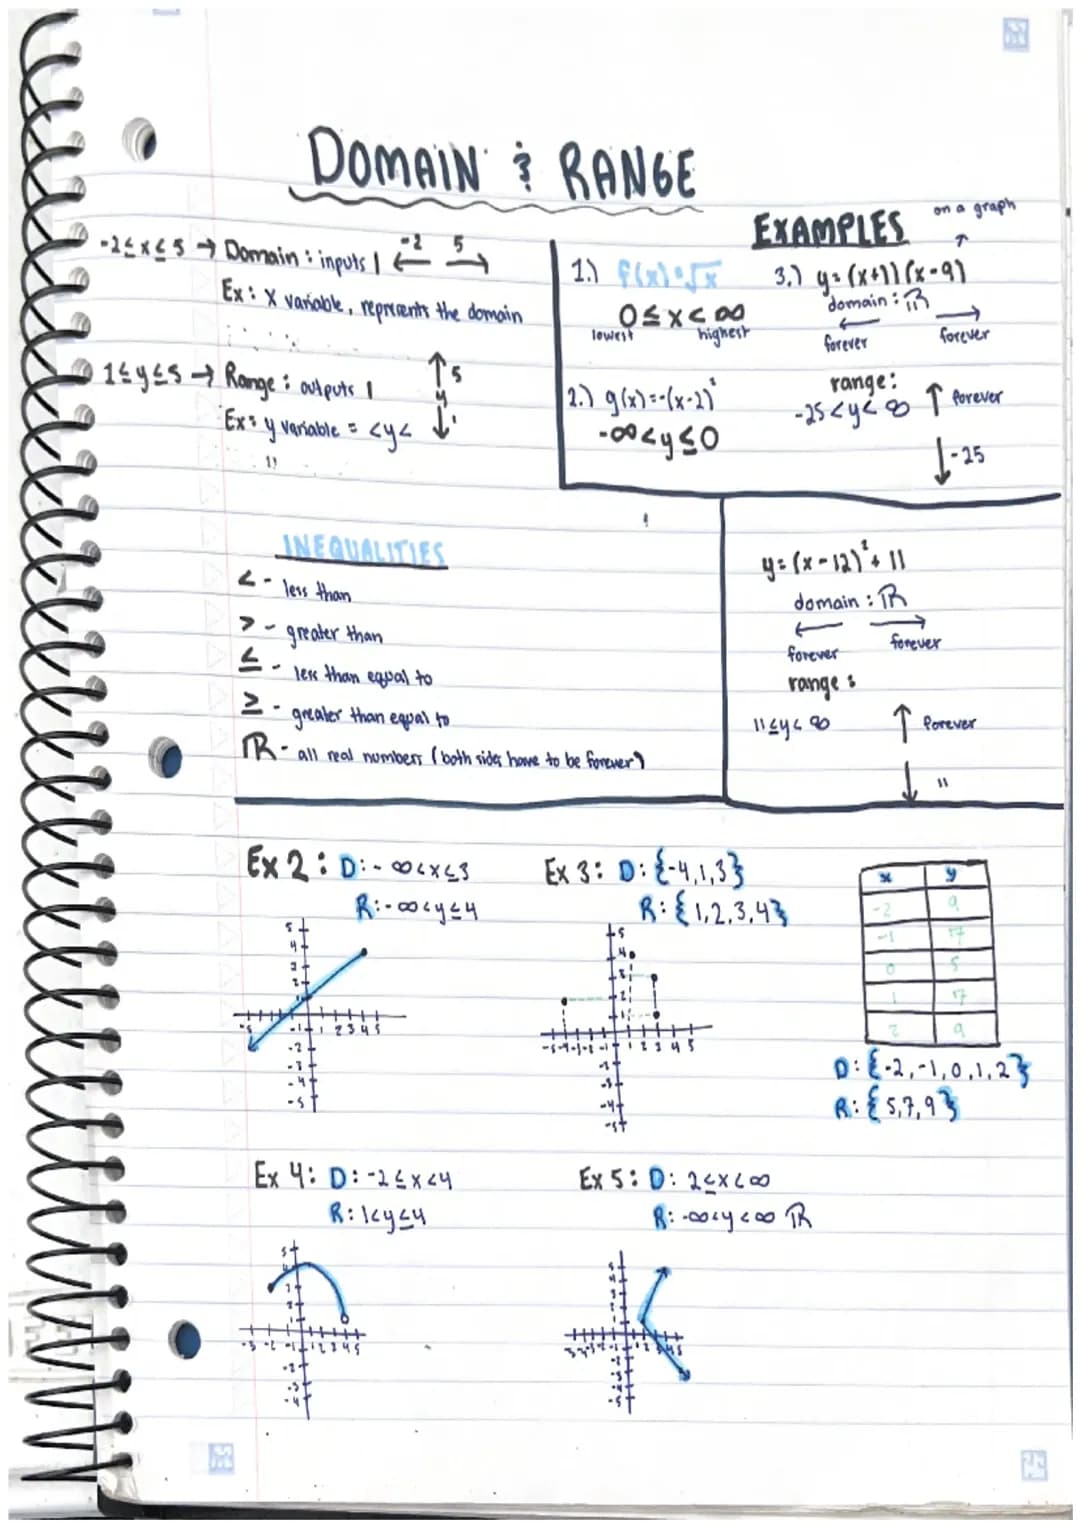 DOMAIN & RANGE
-2≤x≤5 → Domain: inputs | -2 5
Ex: X variable, represents the domain
1≤y≤5 → Range: outputs |
5
y
1
Ex: y variable = <y<
EXAMPLES
on a graph
1.) f(x)=√x
0≤x<∞
lowest highest
2.) g(x)=-(x-2)²
-∞<y≤0
3.) y=(x+1)(x-9)
domain: ℝ
forever forever
range:
-25<y<∞
forever
-25
INEQUALITIES
< - less than
> - greater than
≤ - less than equal to
≥ - greater than equal to
ℝ - all real numbers (both sides have to be forever)
y=(x-12)²+11
domain: ℝ
forever forever
range:
11≤y<∞
forever
11
Ex 2: D: -∞<x≤3
R: -∞<y≤4
Ex 3: D: {-4,1,3}
R: {1,2,3,4}
x y
-2 9
-1 7
0 5
1 7
2 9
D: {-2,-1,0,1,2}
R: {5,7,9}
Ex 4: D: -2≤x<4
R: 1<y≤4
Ex 5: D: 2≤x<∞
R: -∞<y<∞ ℝ